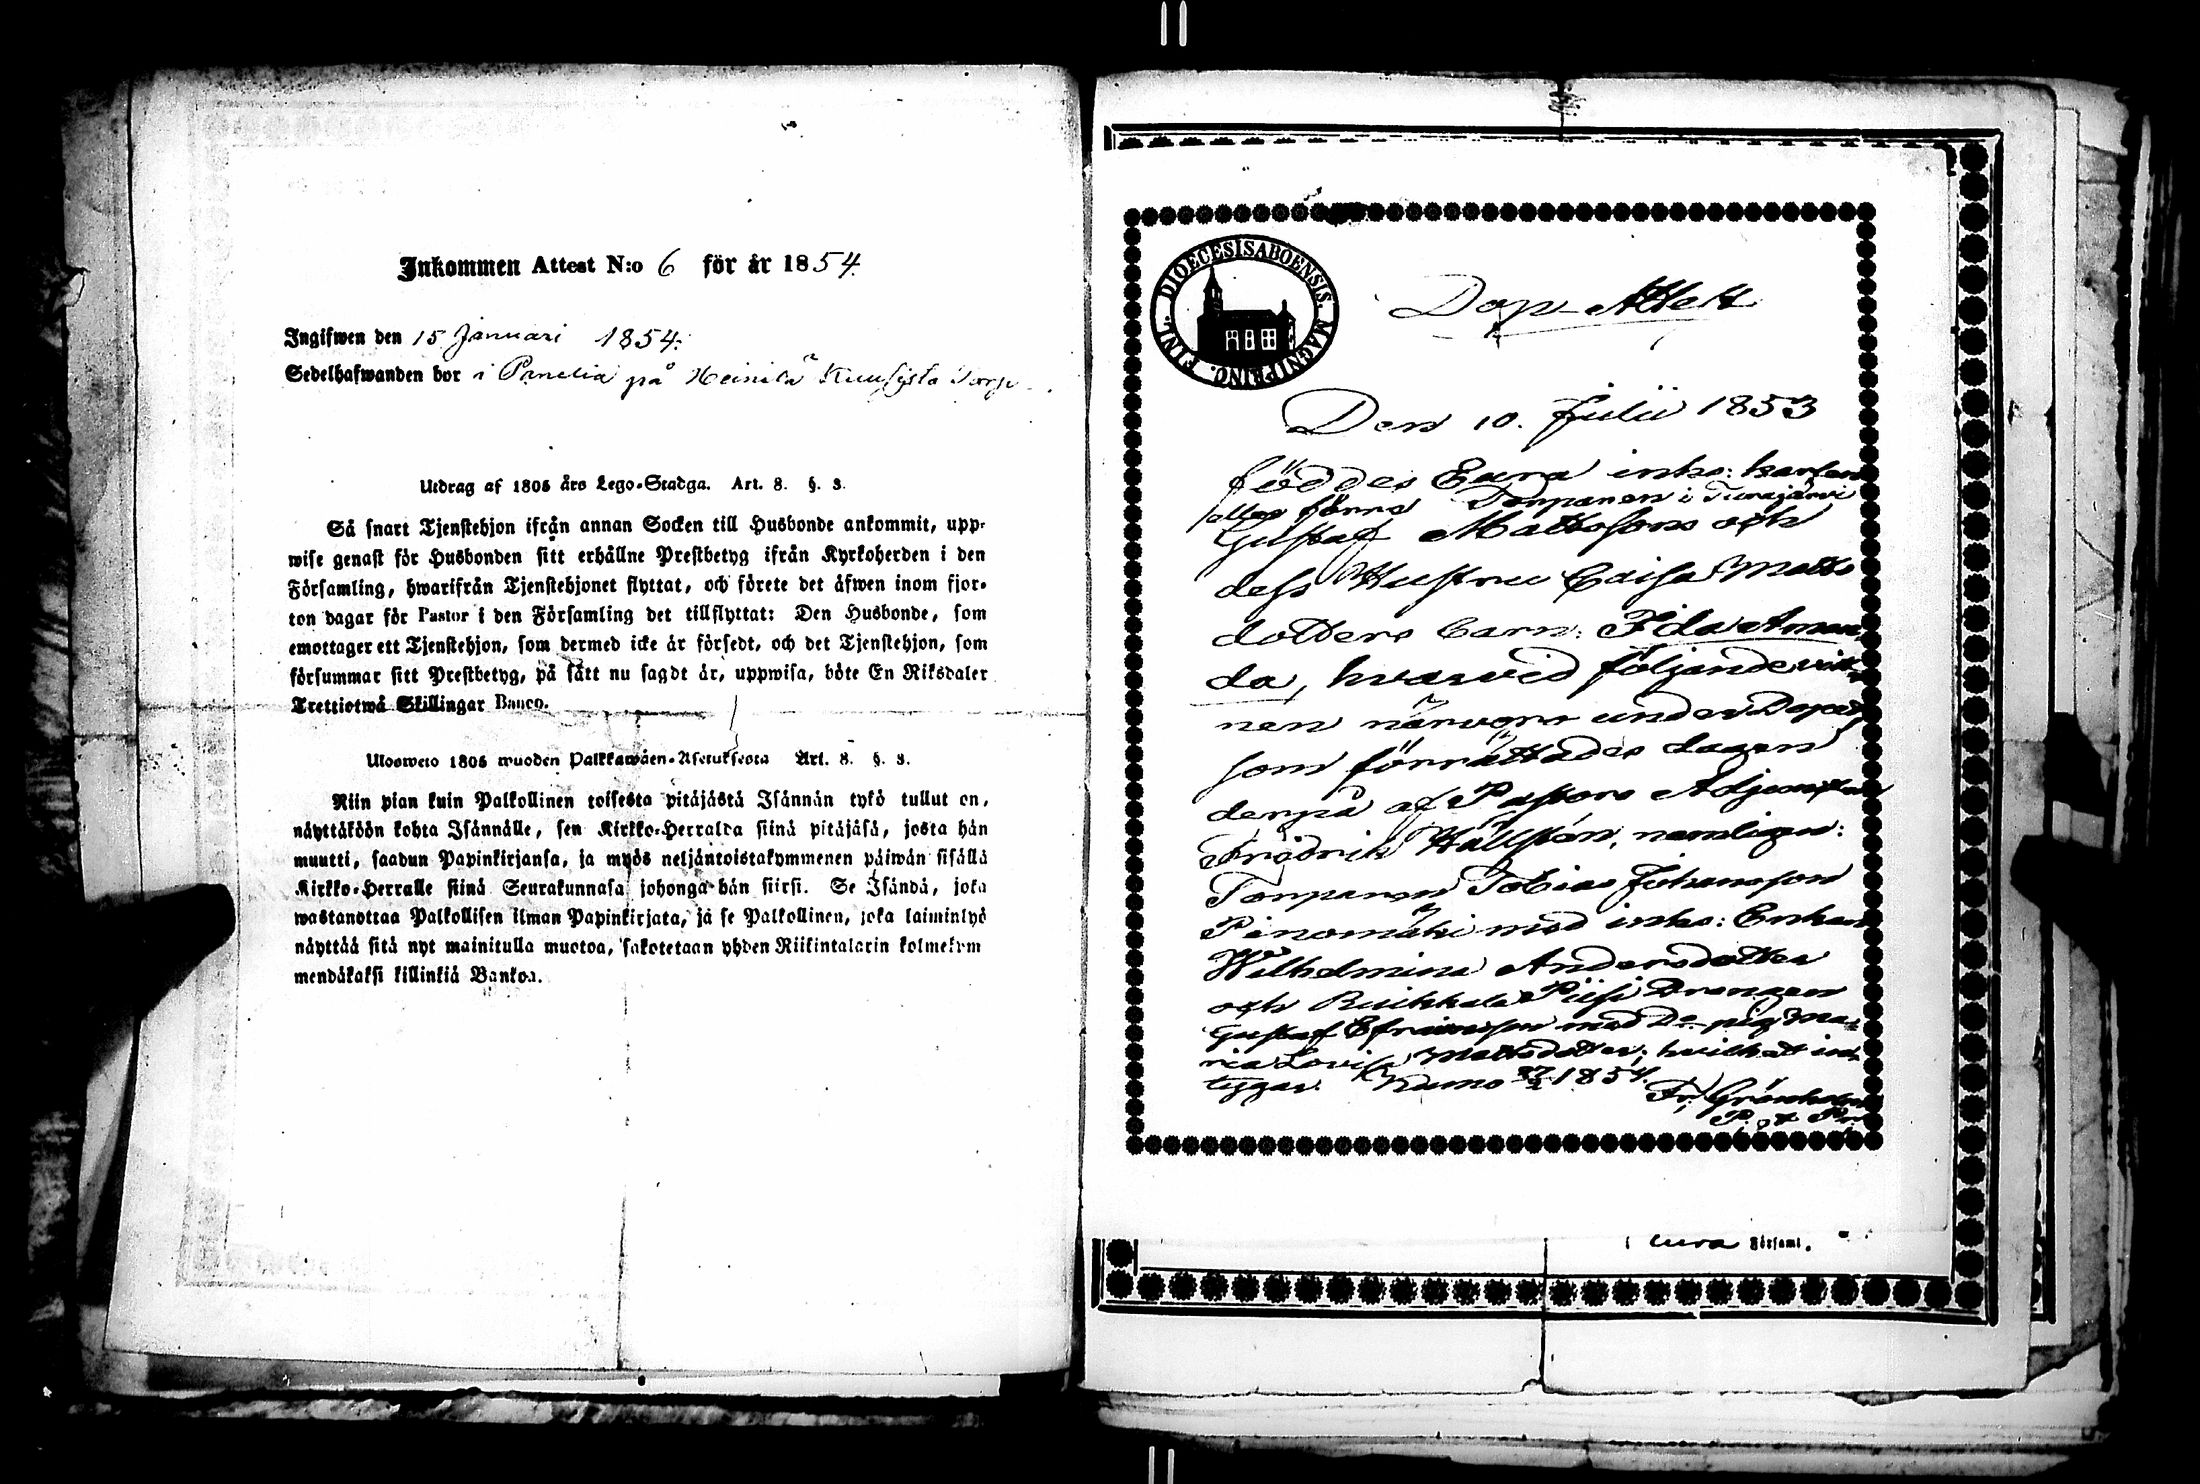 Inkommen Attest N:o 6 för år 1854.
Ingifwen den 15 Januari 1854:
Sedelhafwanden bor i Panelia på Heinilä Kuusisto Torp
Utdrag af 1805 års Lego-Stadga. Art. 8. §. 3.
Så snart Tjenstehjon ifrån annan Socken till Husbonde ankommit, upp-
wise genast för Husbonden sitt erhållne Prestbetyg ifrån Kyrkoherden i den
Församling, hwarifrån Tjenstehjonet flyttat, och förete det äfwen inom fjor-
ton dagar för Pastor i den Församling det tillflyttat: Den Husbonde, som
emottager ett Tjenstehjon, som dermed icke är försedt, och det Tjenstehjon, som
försummar sitt Prestbetyg, på sätt nu sagdt är, uppwisa, böte En Riksdaler
Trettiotwå Skillingar Banco.
Ulosweto 1805 wuoden Palkkawäen-Asetuksesta Art. 8. §. 3.
Niin pian kuin Palkollinen toisesta pitäjästä Isännän tykö tullut on,
näyttäköön kohta Isännälle, sen Kirkko-Herralda siinä pitäjäsä, josta hän
muutti, saadun Papinkirjansa, ja myös neljäntoistakymmenen päiwän sisällä
Kirkko-Herralle siinä Seurakunnasa johonga hän siirsi. Se Isändä, joka
wastanottaa Palkollisen ilman Papinkirjata, ja se Palkollinen, joka laiminlyö
näyttää sitä nyt mainitulla muotoa, sakotetaan yhden Riikintalarin kolmekym
mendäkaksi killinkiä Bankoa.
DIOECESIS ABOENSIS. MAGNI PRINC. FINL.
Dop-Attest
Den 10. Julii 1853
föddes Eura inhs: karlen
eller förra Torparen i Turajärvi
Gustaf Mattsons och
dess Hustru Caisa Matts
dotters barn: Ida Aman
da, hvarvid följande vitt-
nen närvoro under Dopet,
som förrättades dagen
derpå af Pastors Adjuncten
Frädrik Hällfors, nemligen:
Torparen Tobias Johansson
Pinomäki med inhs: Enkan
Wilhelmina Andersdotter
och Riikkala Piisi Drengen
Gustaf Efraimsson med Do pig Ma-
ria Lovisa Mattsdotter; hvilket in
tygar. Kumo 27/2 1854.
Fr. Grönholm
P. o. Pr.
i Eura Förhaml.